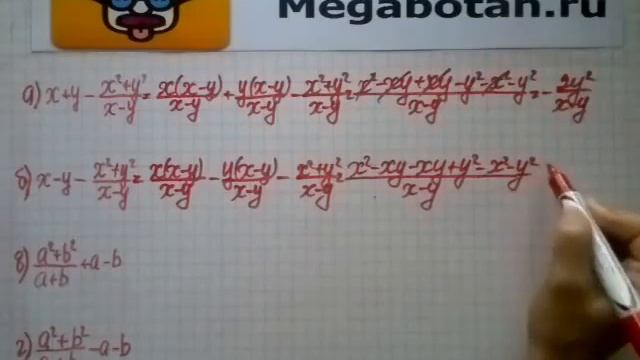 Megabotan.ru
а) x+y - (x²+y²)/(x-y) = x(x-y)/(x-y) + y(x-y)/(x-y) - (x²+y²)/(x-y) = (x²-xy+xy-y²-x²-y²)/(x-y) = - 2y²/(x-y)
б) x-y - (x²+y²)/(x-y) = x(x-y)/(x-y) - y(x-y)/(x-y) - (x²+y²)/(x-y) = (x²-xy-xy+y²-x²-y²)/(x-y)
в) (a²+b²)/(a+b) + a-b
г) (a²+b²)/(a+b) - a-b